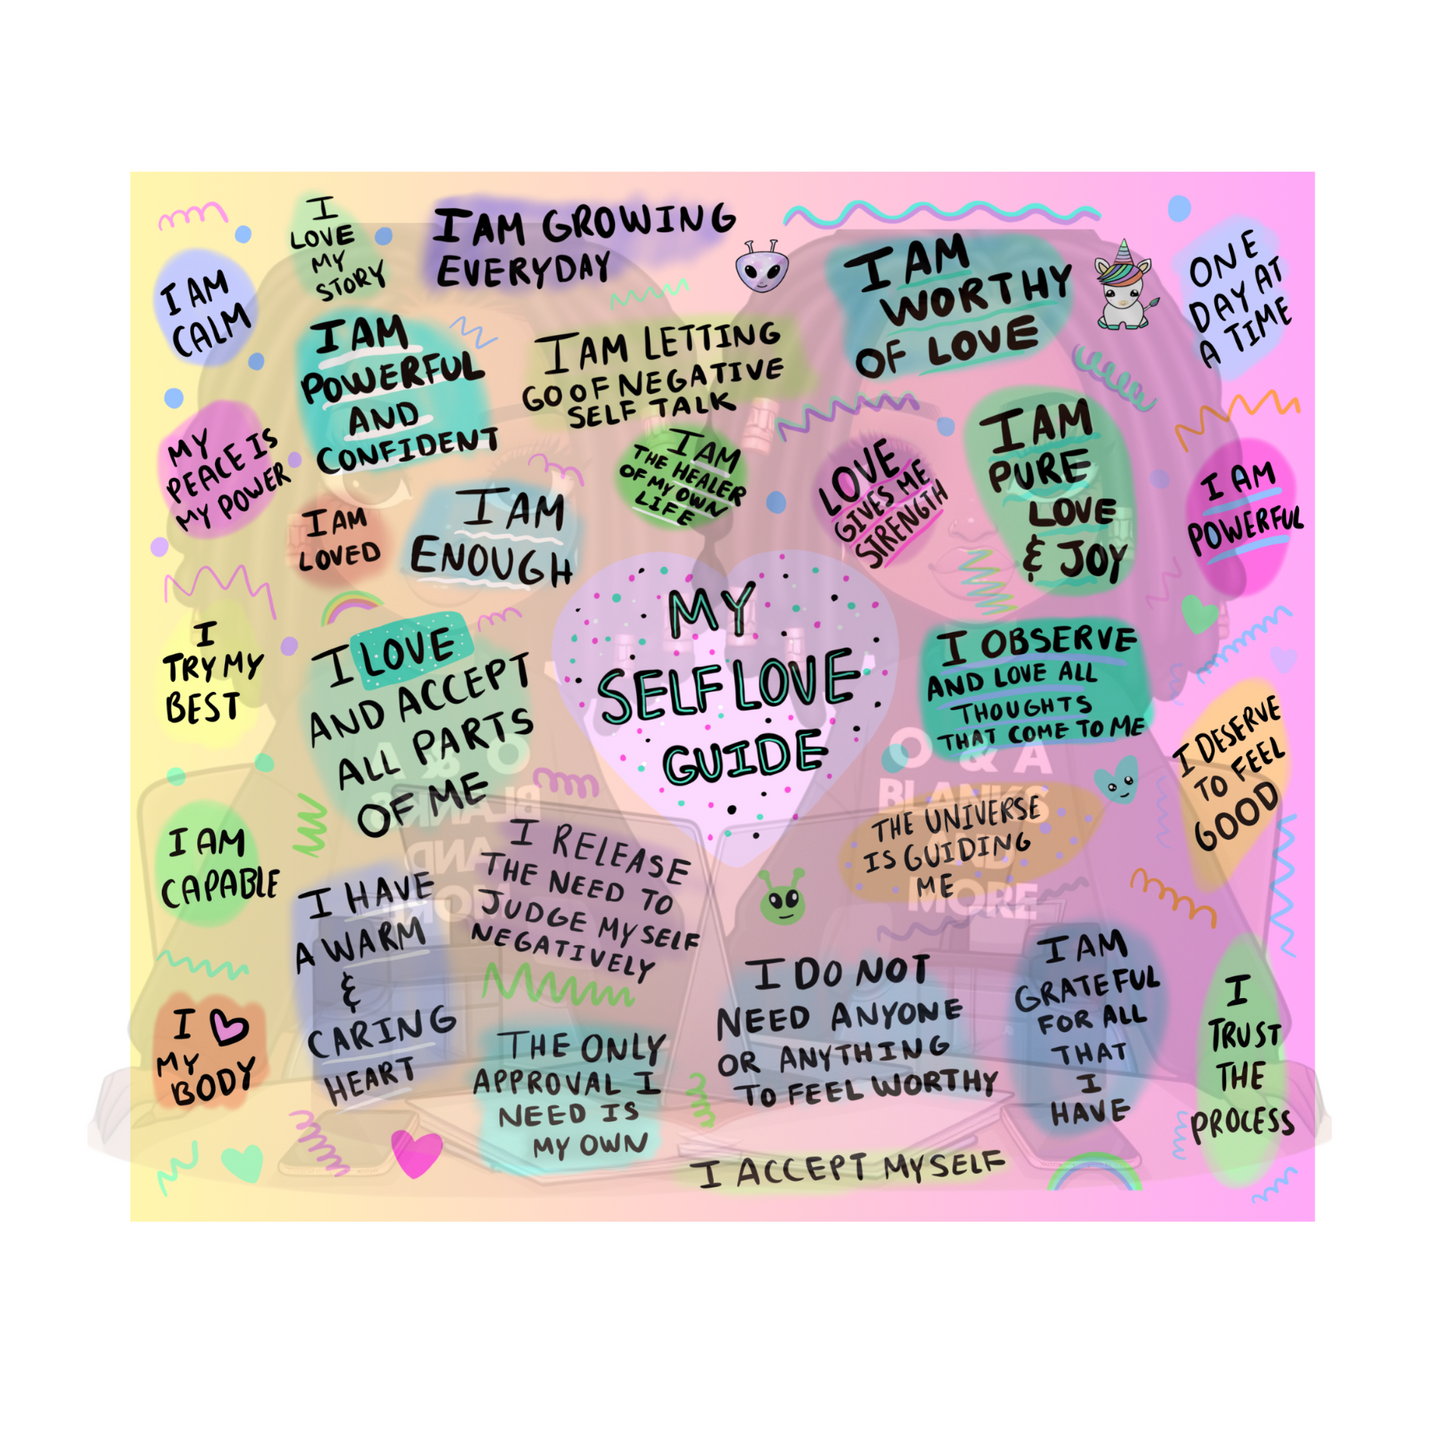 I
LOVE
MY
STORY
I AM GROWING
EVERYDAY
I AM
CALM
I AM
WORTHY
OF LOVE
ONE
DAY AT
A TIME
I AM
POWERFUL
AND
CONFIDENT
I AM LETTING
GO OF NEGATIVE
SELF TALK
MY
PEACE IS
MY POWER
I AM
THE HEALER
OF MY OWN
LIFE
LOVE
GIVES ME
STRENGTH
I AM
PURE
LOVE
& JOY
I AM
POWERFUL
I AM
LOVED
I AM
ENOUGH
MY
SELF LOVE
GUIDE
I
TRY MY
BEST
I LOVE
AND ACCEPT
ALL PARTS
OF ME
I OBSERVE
AND LOVE ALL
THOUGHTS
THAT COME TO ME
I DESERVE
TO FEEL
GOOD
O & A
BLANKS
AND
MORE
O & A
BLANKS
AND
MORE
THE UNIVERSE
IS GUIDING
ME
I AM
CAPABLE
I RELEASE
THE NEED TO
JUDGE MYSELF
NEGATIVELY
I HAVE
A WARM
&
CARING
HEART
I DO NOT
NEED ANYONE
OR ANYTHING
TO FEEL WORTHY
I AM
GRATEFUL
FOR ALL
THAT
I
HAVE
I
TRUST
THE
PROCESS
I
MY
BODY
THE ONLY
APPROVAL I
NEED IS
MY OWN
I ACCEPT MYSELF